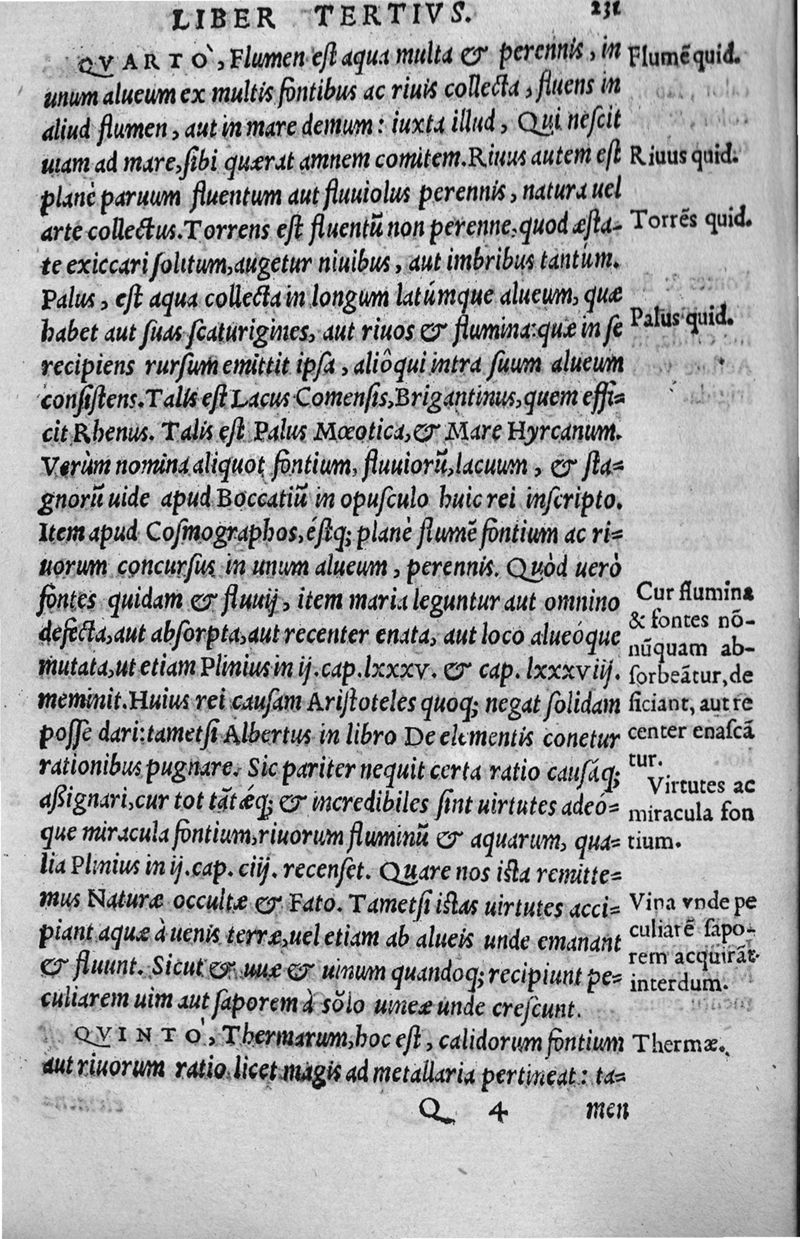 LIBER TERTIVS. 231
QVARTO`, Flumen est aqua multa & perennis, in
unum alueum ex multis fontibus ac riuis collecta, fluens in
aliud flumen, aut in mare demum: iuxta illud, Qui nescit
uiam ad mare, sibi quærat amnem comitem. Riuus autem est
planè paruum fluentum aut fluuiolus perennis, natura uel
arte collectus. Torrens est fluentũ non perenne, quod æsta-
te exiccari solitum, augetur niuibus, aut imbribus tantum.
Palus, est aqua collecta in longum latúmque alueum, quæ
habet aut suas scaturigines, aut riuos & flumina: quæ in se
recipiens rursum emittit ipsa, aliôqui intra suum alueum
consistens. Talis est Lacus Comensis, Brigantinus, quem effi=
cit Rhenus. Talis est Palus Mœotica, & Mare Hyrcanum.
Verùm nomina aliquot fontium, fluuiorũ, lacuum, & sta=
gnorũ uide apud Boccatiũ in opusculo huic rei inscripto.
Item apud Cosmographos, éstq; planè flumẽ fontium ac ri=
uorum concursus in unum alueum, perennis. Quòd uerò
fontes quidam & fluuij, item maria leguntur aut omnino
defecta, aut absorpta, aut recenter enata, aut loco alueóque
mutata, ut etiam Plinius in ij. cap. lxxxv. & cap. lxxxviij.
meminit. Huius rei causam Aristoteles quoq; negat solidam
posse dari: tametsi Albertus in libro De elementis conetur
rationibus pugnare. Sic pariter nequit certa ratio causáq;
aßignari, cur tot tãtæq; & incredibiles sint uirtutes adeo=
que miracula fontium, riuorum fluminũ & aquarum, qua=
lia Plinius in ij. cap. ciij. recenset. Quare nos ista remitte=
mus Naturæ occultæ & Fato. Tametsi istas uirtutes acci=
piant aquæ à uenis terræ, uel etiam ab alueis unde emanant
& fluunt. Sicut & uuæ & uinum quandoq; recipiunt pe=
culiarem uim aut saporem à solo uineæ unde crescunt.
QVINTO`, Thermarum, hoc est, calidorum fontium
aut riuorum ratio licet magis ad metallaria pertineat: ta=
Q 4 men
Flumẽ quid.
Riuus quid.
Torrẽs quid.
Palus quid.
Cur flumina
& fontes nõ-
nũquam ab-
sorbeãtur, de
ficiant, aut re
center enascã
tur.
Virtutes ac
miracula fon
tium.
Vina vnde pe
culiarẽ sapo-
rem acquirãt
interdum.
Thermæ.